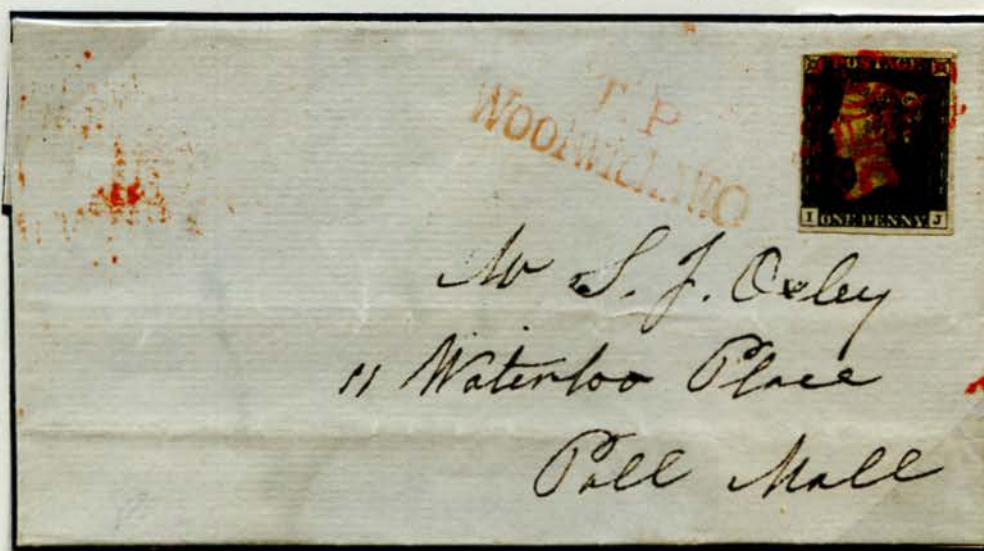 T.P
WOOLWICH.W.O
POSTAGE
I ONE PENNY J
Mr S. J. Oxley
11 Waterloo Place
Pall Mall